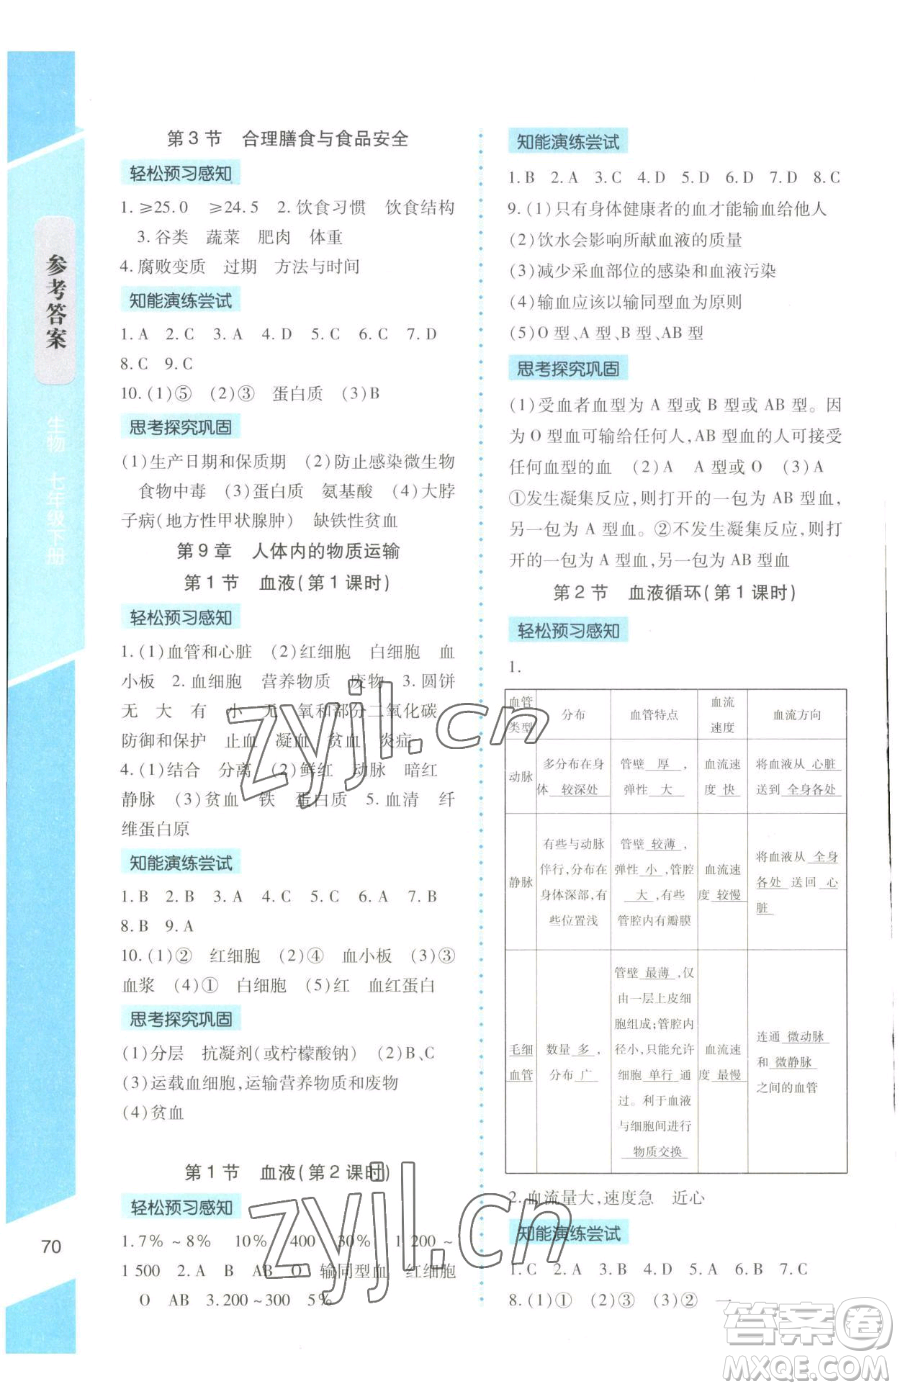 参考答案
生物 七年级下册
70
第3节 合理膳食与食品安全
轻松预习感知
1.≥25.0 ≥24.5 2.饮食习惯 饮食结构
3.谷类 蔬菜 肥肉 体重
4.腐败变质 过期 方法与时间
知能演练尝试
1.A 2.C 3.A 4.D 5.C 6.C 7.D
8.C 9.C
10.(1)⑤ (2)③ 蛋白质 (3)B
思考探究巩固
(1)生产日期和保质期 (2)防止感染微生物
食物中毒 (3)蛋白质 氨基酸 (4)大脖
子病(地方性甲状腺肿) 缺铁性贫血
第9章 人体内的物质运输
第1节 血液(第1课时)
轻松预习感知
1.(1)血管和心脏 (2)红细胞 白细胞 血
小板 2.血细胞 营养物质 废物 3.圆饼
无 大 有 小 无 氧和部分二氧化碳
防御和保护 止血 凝血 贫血 炎症
4.(1)结合 分离 (2)鲜红 动脉 暗红
静脉 (3)贫血 铁 蛋白质 5.血清 纤
维蛋白原
知能演练尝试
1.B 2.B 3.A 4.C 5.C 6.C 7.D
8.B 9.A
10.(1)② 红细胞 (2)④ 血小板 (3)③
血浆 (4)① 白细胞 (5)红 血红蛋白
思考探究巩固
(1)分层 抗凝剂(或柠檬酸钠) (2)B、C
(3)运载血细胞,运输营养物质和废物
(4)贫血
第1节 血液(第2课时)
轻松预习感知
1.7%~8% 10% 400 30% 1 200~
1 500 2.A B AB O 输同型血 红细胞
O AB 3.200~300 5%
知能演练尝试
1.B 2.A 3.C 4.C 5.C 6.D 7.D 8.C
9.(1)只有身体健康者的血才能输血给他人
(2)饮水会影响所献血液的质量
(3)减少采血部位的感染和血液污染
(4)输血应该以输同型血为原则
(5)O型、A型、B型、AB型
思考探究巩固
(1)受血者血型为A型或B型或AB型。因
为O型血可输给任何人,AB型可接受任何
血型的血 (2)A A型或O (3)
①发生凝集反应,则打开的一包为AB型血,
另一包为A型血。②不发生凝集反应,则打
开的一包为A型血,另一包为AB型血
第2节 血液循环(第1课时)
轻松预习感知
1.
血管类型 分布 血管特点 血流速度 血流方向
动脉 多分布在身体 较深处 管壁 厚,弹性 大 血流速度 快 将血液从 心脏 送到 全身各处
静脉 有些与动脉伴行,分布在身体深部,有些位置浅 管壁 较薄,弹性 小,管腔 大,有些管腔内有瓣膜 血流速度 较慢 将血液从 全身各处 送回 心脏
毛细血管 数量 多,分布 广 管壁 最薄,仅由一层上皮细胞组成;管腔内径小,只能允许红细胞 单行 通过。利于血液与细胞间进行 物质交换 血流速度 最慢 连通 微动脉 和 微静脉 之间的血管
2.血流量大,速度急 近心
知能演练尝试
1.C 2.D 3.C 4.A 5.B 6.B 7.C
8.(1)① (2)③ (3)②
zyjl.cn
zyjl.cn
答案圈
MXQE.COM